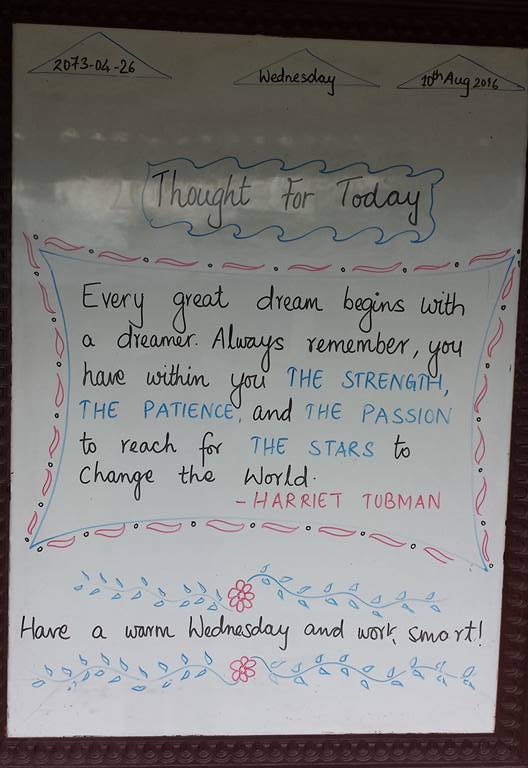 2073-04-26
Wednesday
10th Aug 2016
Thought For Today
Every great dream begins with
a dreamer. Always remember, you
have within you THE STRENGTH,
THE PATIENCE, and THE PASSION
to reach for THE STARS to
Change the World.
- HARRIET TUBMAN
Have a warm Wednesday and work smart!